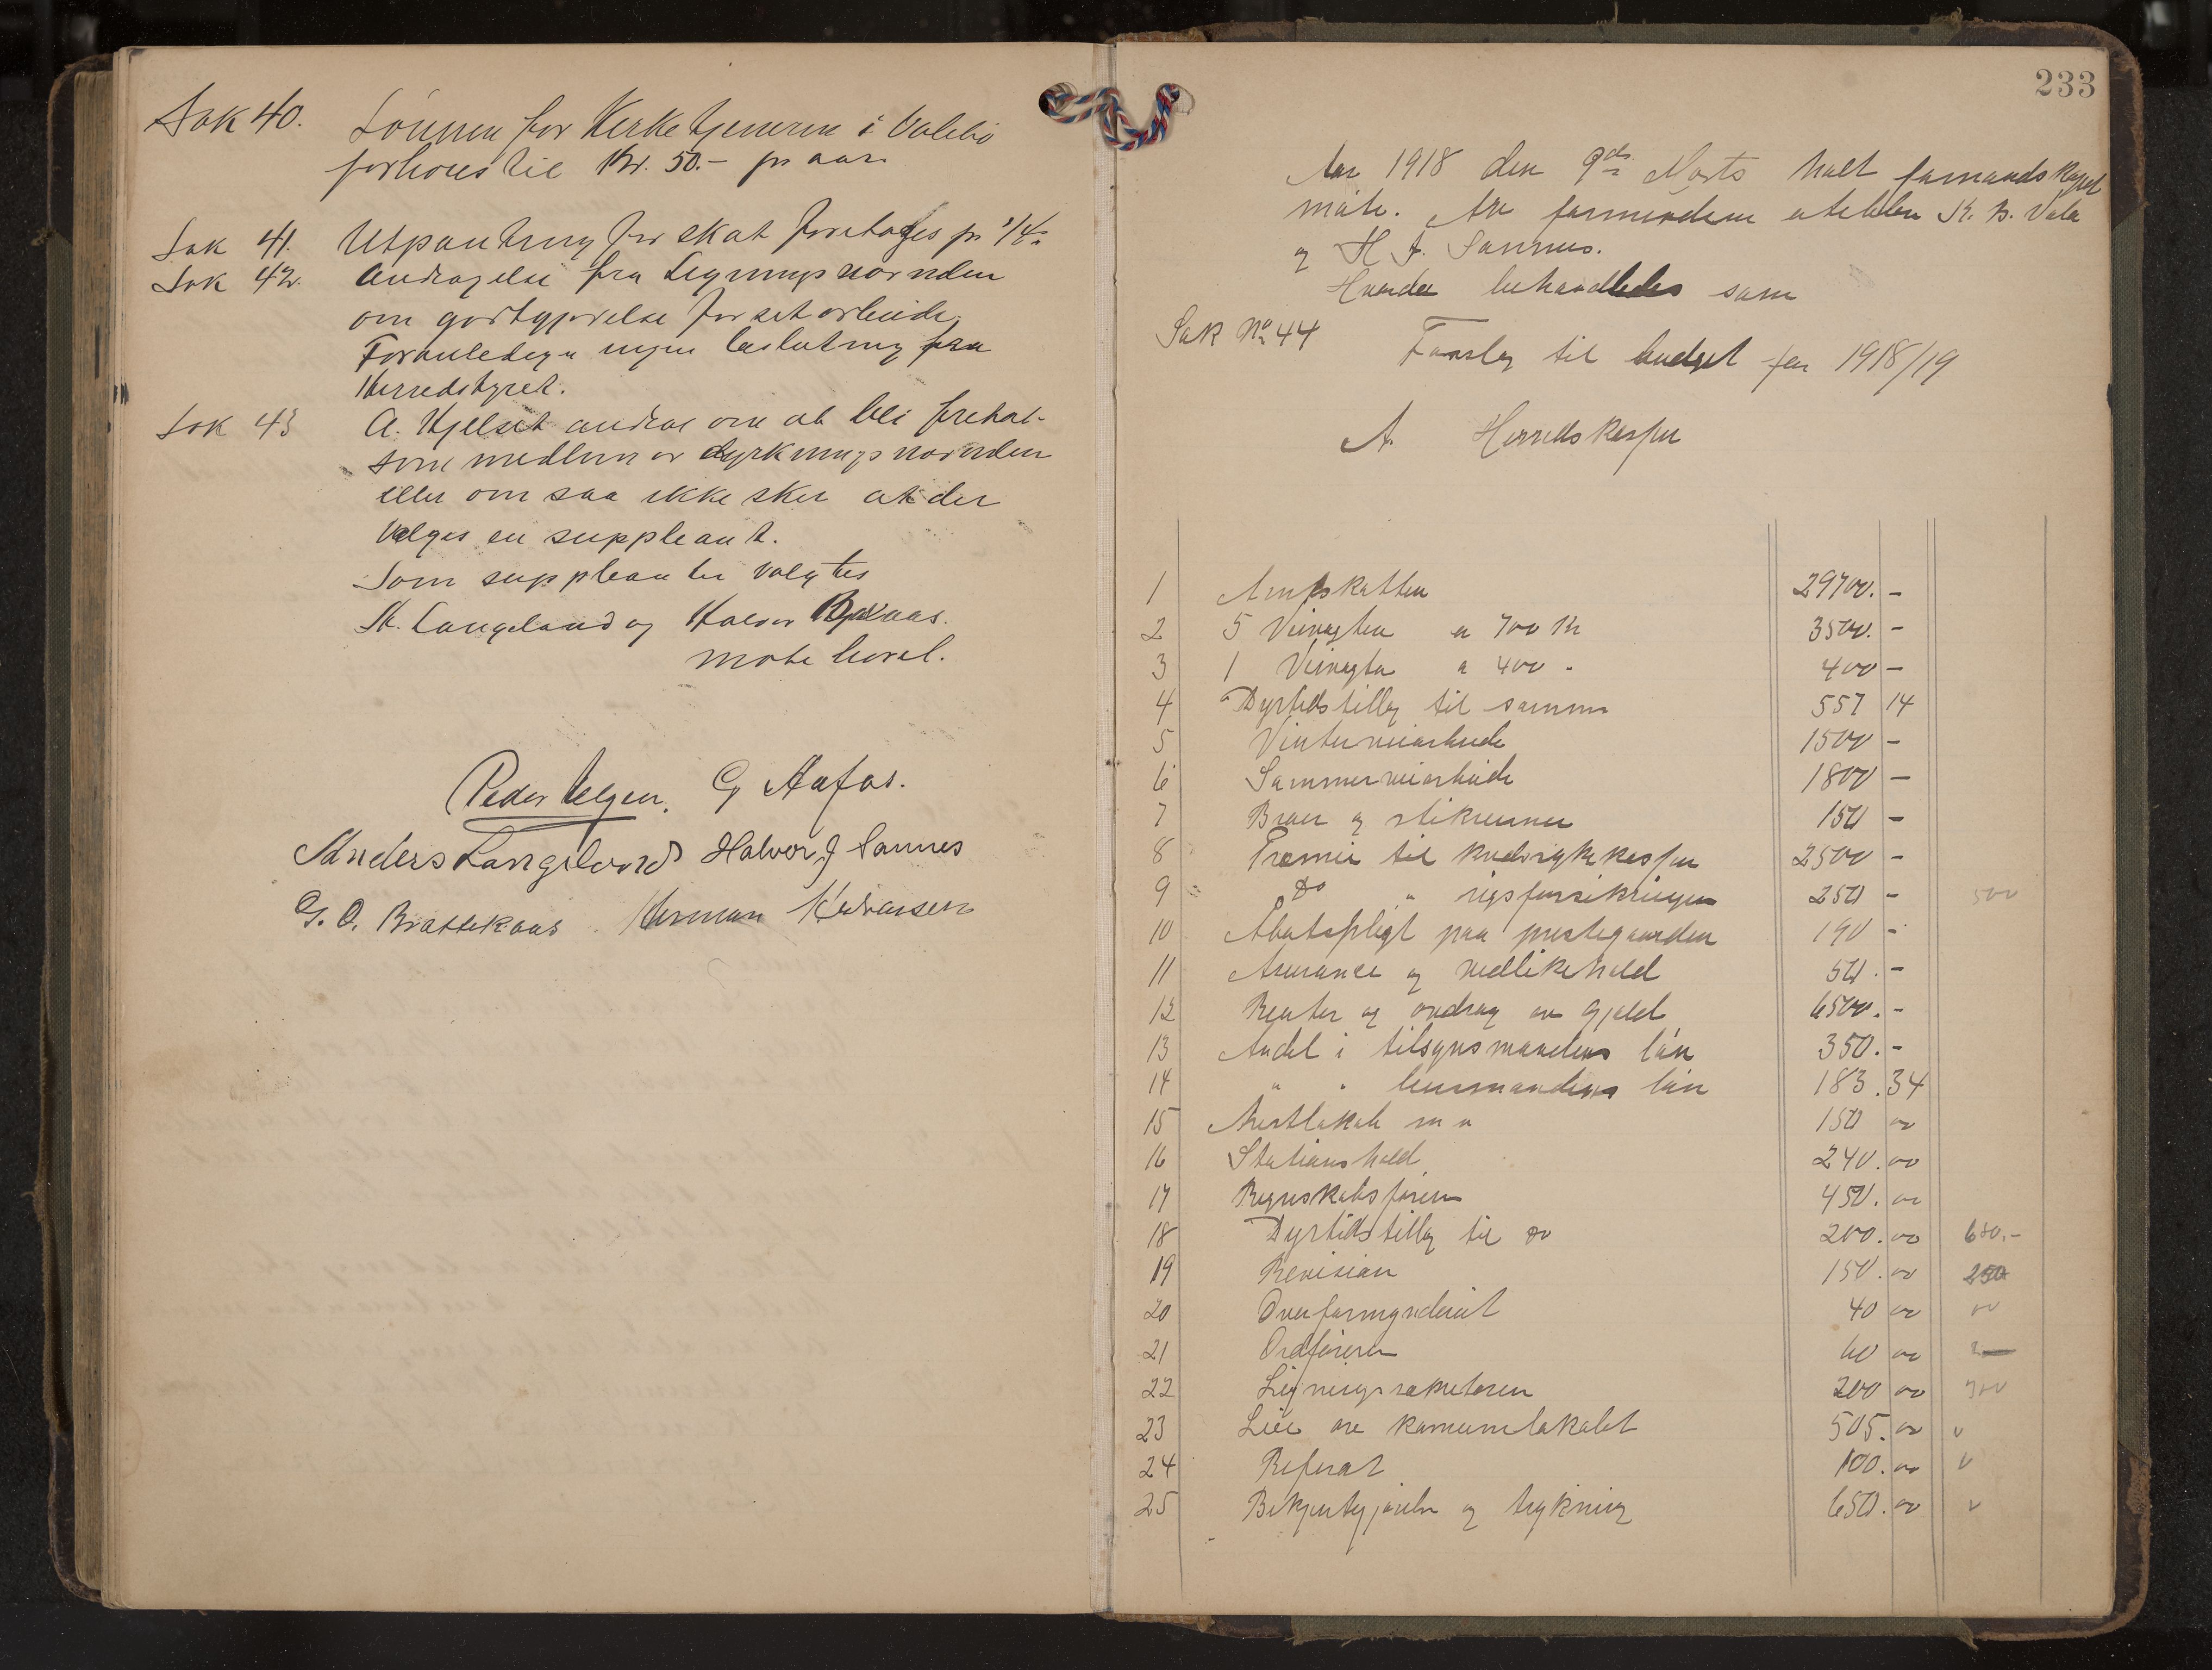 Sak 40. Lönnen for Kirketjeneren i Valebö
forhöies til Kr. 50.- pr aar.
Sak 41. Utpantning for skat foretages pr 1/4.
Sak 42. Andragelse fra Ligningsnævnden
om godtgjörelse for sit arbeide.
Foranlediger ingen beslutning fra
Herredstyret.
Sak 43 A. Hjelset andrar om at bli fritat
som medlem av dyrkningsnævnden
eller om saa ikke sker at der
vælges en suppleant.
Som suppleanter valgtes
A. Langeland og Halvor
möte hævet.
Peder G Aafos.
Anders Langeland Halvor J Sannes
G. O. Brattekaas Herman
233
Aar 1918 den 9de Marts halt formandskapet
möte. Av formændene uteblev K. B. Vala
og H J. Sannes.
Hvorda behandledes som
Sak No 44 Forslag til budget for 1918/19
A. Herredskassen
1 Amtskatten 29700. -
2 5 Veivogtere a 700 Kr 3500. -
3 1 Veivogter a 400 " 400 -
4 Dyrtidstillæg til samme 557 14
5 Vinterveiarbeide 1500 -
6 Sommerveiarbeide 1800 -
7 Broer og stikrenner 150 -
8 Præmie til kredssykekassen 2500 -
9 Do " rigsforsikringen 250 - 500
10 Åbotspligt paa prestegaarden 190 -
11 Assurance og vedlikehold 50. -
12 Renter og avdrag av gjæld 6500. -
13 Andel i tilsynsmandens lön 350. -
14 " " lensmandens lön 183. 34
15 Arestlokale m a 150 00
16 Stationshold 240. 00
17 Regnskabsföreren 450. 00
18 Dyrtidstillæg til do 200. 00 650.-
19 Revision 150. 00 250
20 Overformynderiet 40 00
21 Ordföreren 60 00
22 Ligningssekretæren 200 00 300
23 Leie av komunelokalet 505. 00 v
24 Referat 100. 00 v
25 Bekjentgjörelse og trykning 650. 00 v